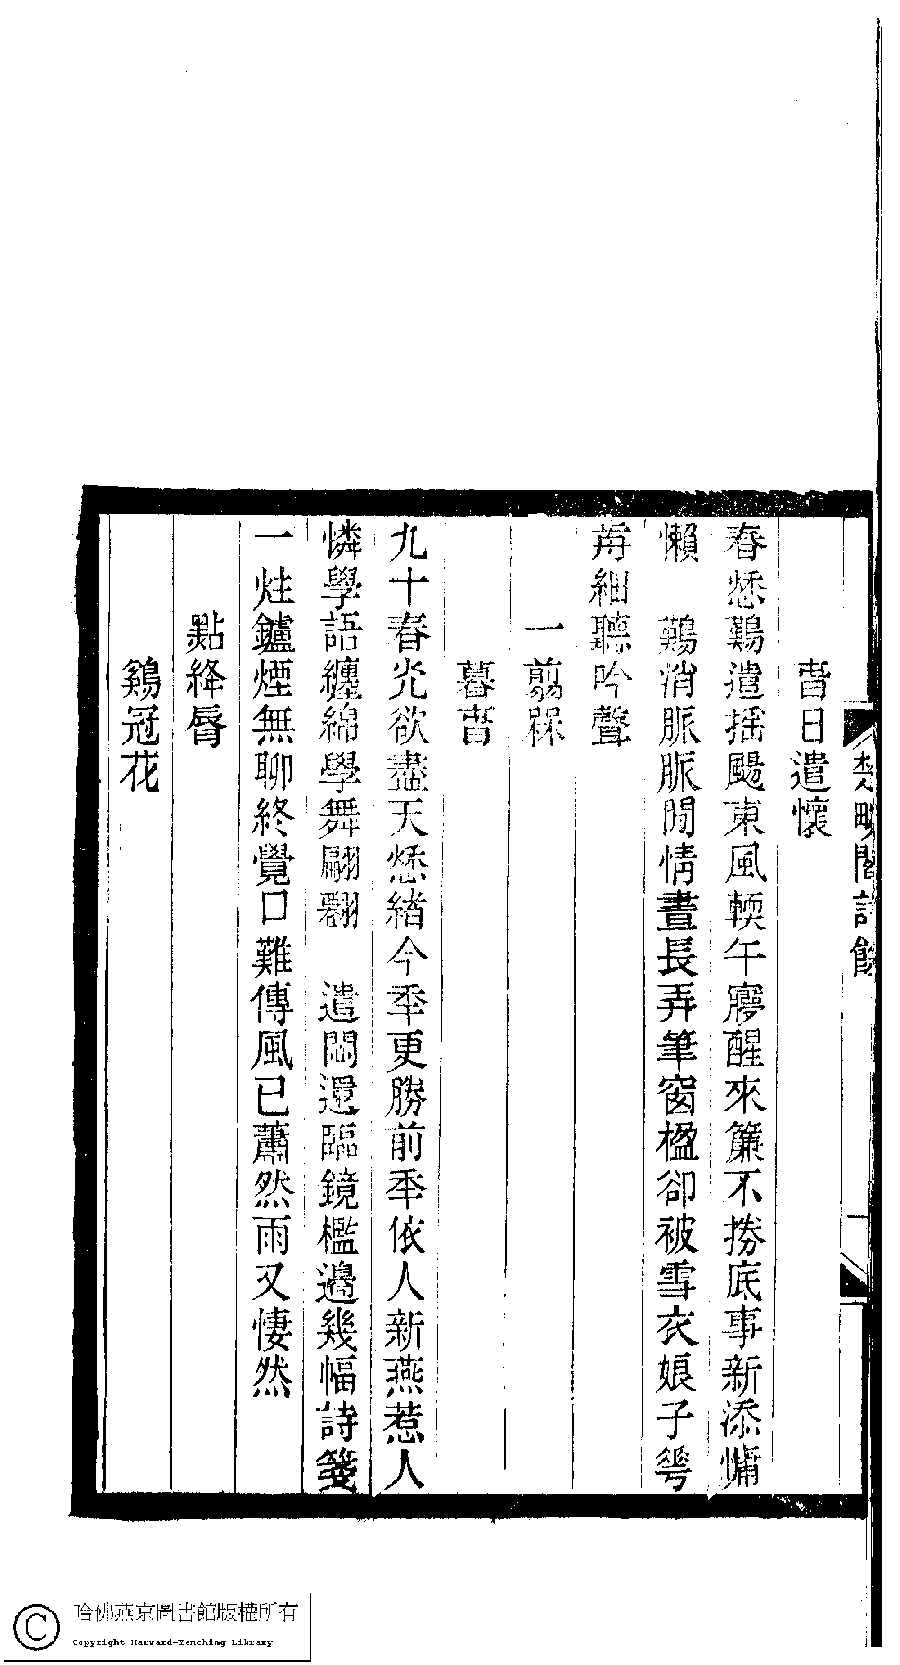 萅日遣懷
春愁鷄遣揺颺東風輭午㝱醒來簾不捲底事新添慵
懶　鷄消脈脈閒情晝長弄筆窗楹卻被雪衣娘子㝵
苒細聽吟聲
一翦槑
暮萅
九十春光欲盡天愁緒今秊更勝前秊依人新燕惹人
憐學語纏綿學舞翩翾　遣悶還臨鏡檻邊幾幅詩箋
一炷鑪煙無聊終覺口難傳風已蕭然雨又悽然
點絳脣
鷄冠花
閣詩餘
一
哈佛燕京圖書館版權所有
Copyright Harvard-Yenching Library